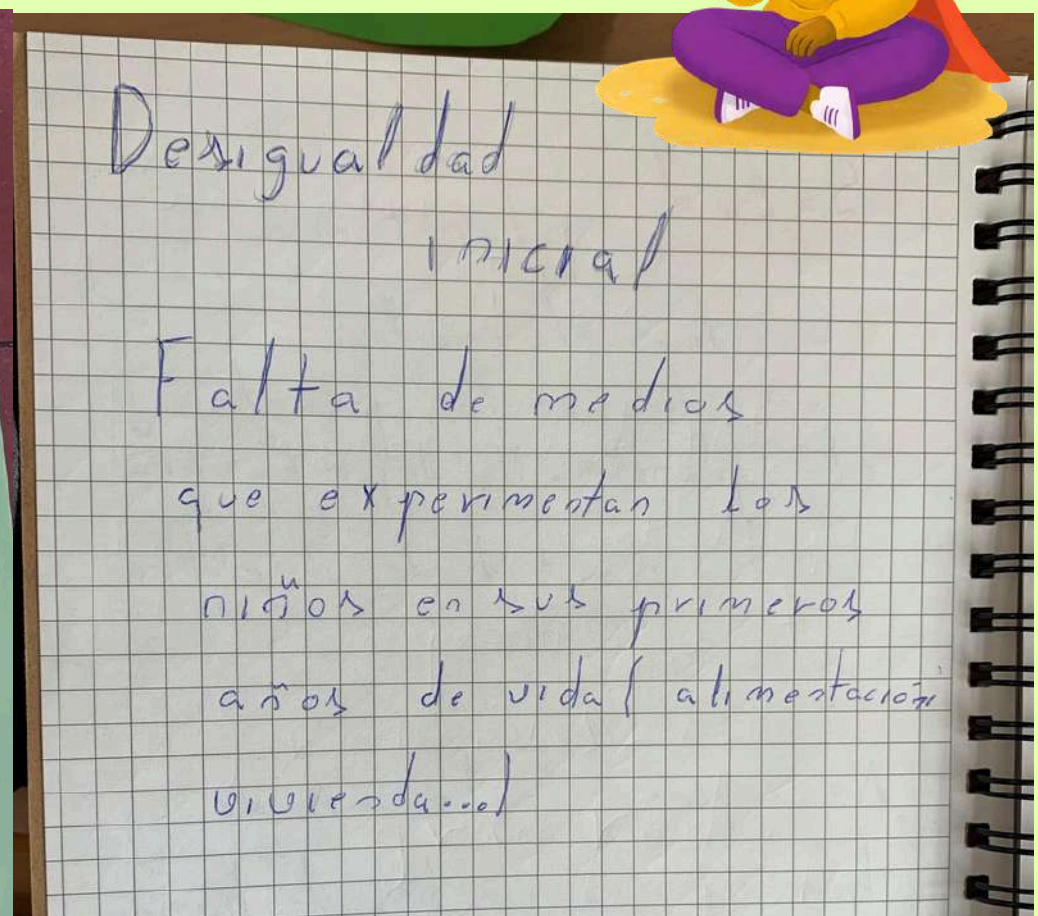 Desigualdad
inicial
Falta de medios
que experimentan los
niños en sus primeros
años de vida (alimentación
vivienda...)